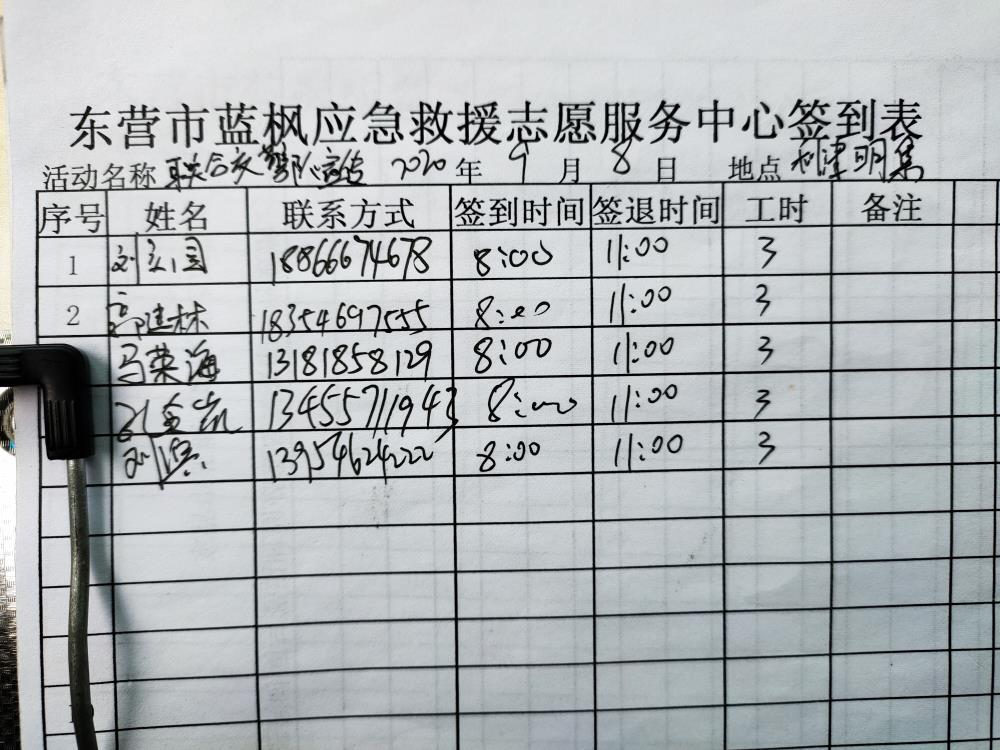 东营市蓝枫应急救援志愿服务中心签到表
活动名称 联合交警部宣传 2020 年 9 月 8 日 地点 利津明集
序号 姓名 联系方式 签到时间 签退时间 工时 备注
1 刘 18866674678 8:00 11:00 3
2 高建林 18354697555 8:00 11:00 3
马荣海 13181858129 8:00 11:00 3
13455711943 8:00 11:00 3
刘 13954624222 8:00 11:00 3